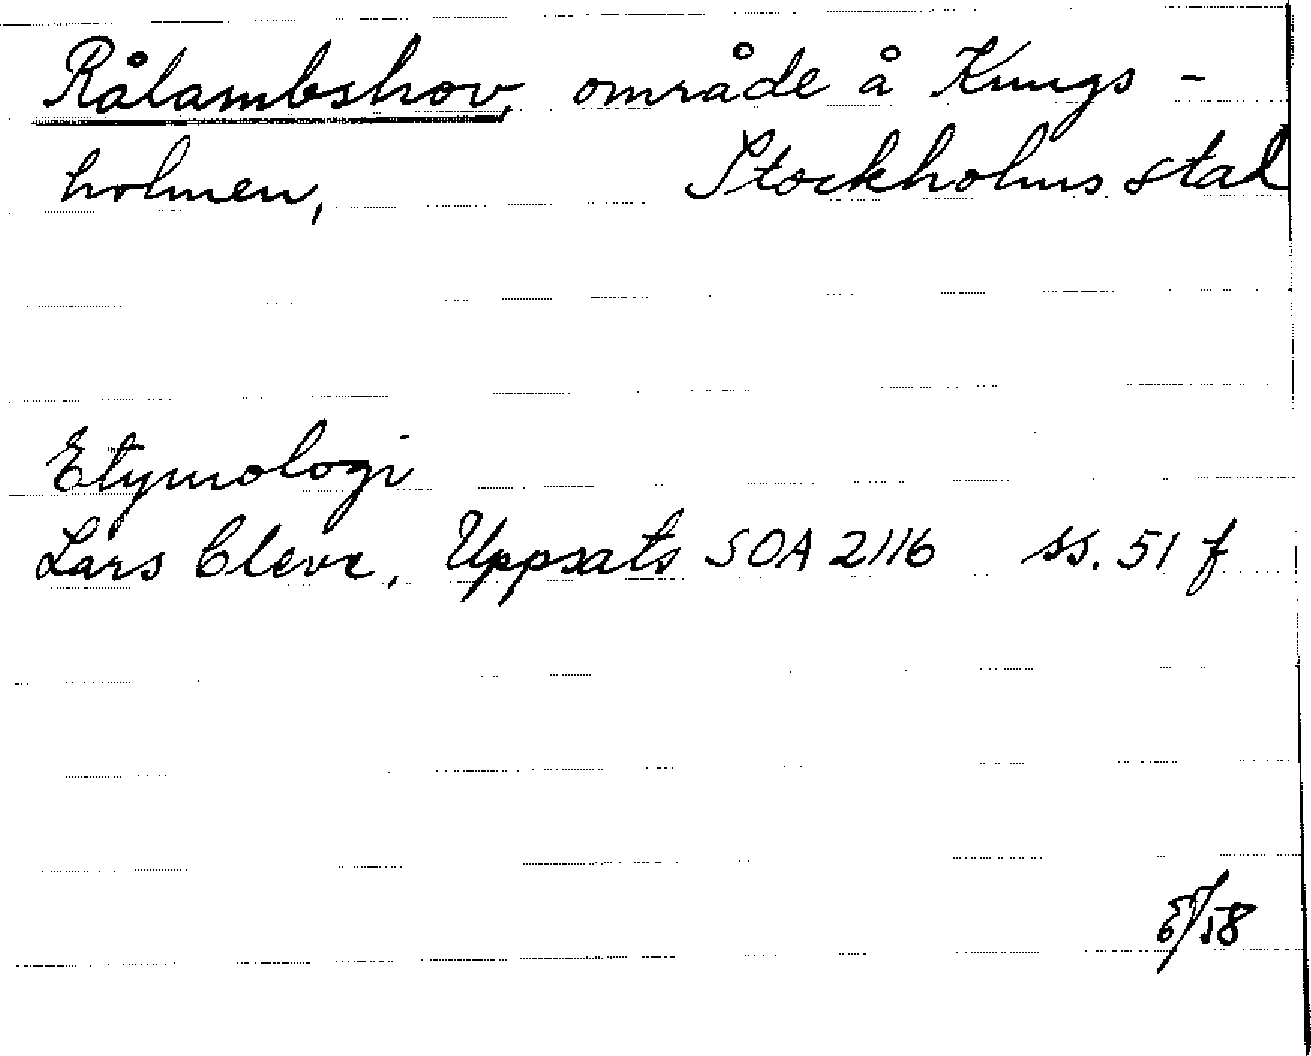 Rålambshov, område å Kungs-
holmen, Stockholms stad
Etymologi
Lars Cleve, Uppsats SOA 2116 ss. 51 f